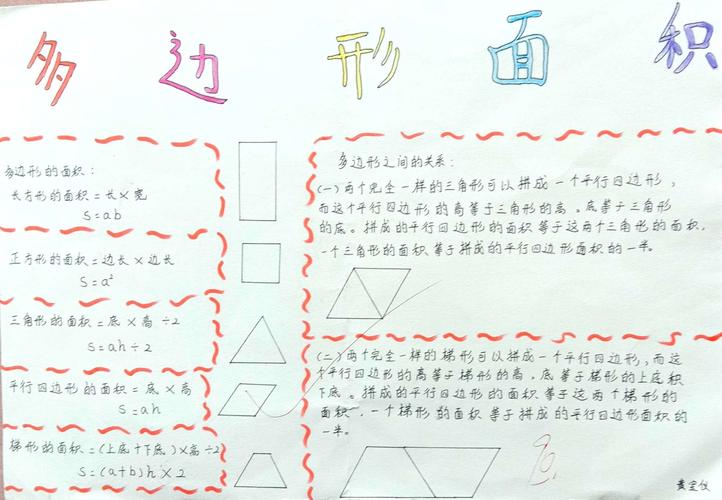 多边形面积
多边形的面积：
长方形的面积＝长×宽
S=ab
正方形的面积＝边长×边长
S=a²
三角形的面积＝底×高÷2
S=ah÷2
平行四边形的面积＝底×高
S=ah
梯形的面积＝(上底+下底)×高÷2
S=(a+b)h×2
多边形之间的关系：
(一)两个完全一样的三角形可以拼成一个平行四边形，
而这个平行四边形的高等于三角形的高。底等于三角形
的底。拼成的平行四边形的面积等于这两个三角形的面积，
一个三角形的面积等于拼成的平行四边形面积的一半。
(二)两个完全一样的梯形可以拼成一个平行四边形，而这
个平行四边形的高等于梯形的高，底等于梯形的上底积
下底。拼成的平行四边形的面积等于这两个梯形的
面积，一个梯形的面积等于拼成的平行四边形面积的
一半。